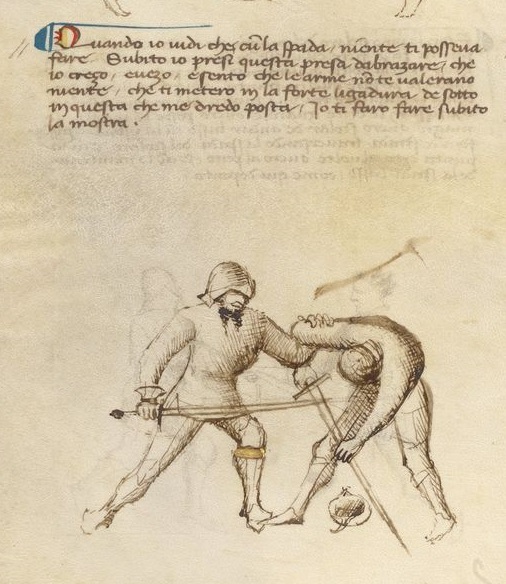 Quando io vidi che cū la spada niente ti posseva
fare. Subito io presi questa presa dabrazare, che
lo crezo, e vezo, e sento che le arme nō te valerano
niente, che ti metero in la forte ligadura de sotto
in questa che me dredo posta, Io ti faro fare subito
la mostra.